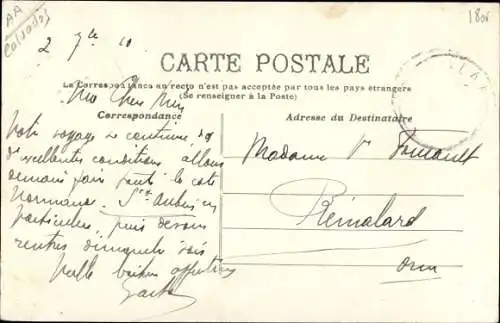 AA
Calvados
1806
2 7bre 10
CARTE POSTALE
La Correspondance au recto n'est pas acceptée par tous les pays étrangers
(Se renseigner à la Poste)
Mes Chers
Correspondance
Adresse du Destinataire
Notre voyage se continue ds
d'excellentes conditions allons
demain faire toute la côte
Normande, St Aubin en
particulier, puis devons
rentrer dimanche soir
Mille baisers affectueux
Madame Vve
Rémalard
Orne